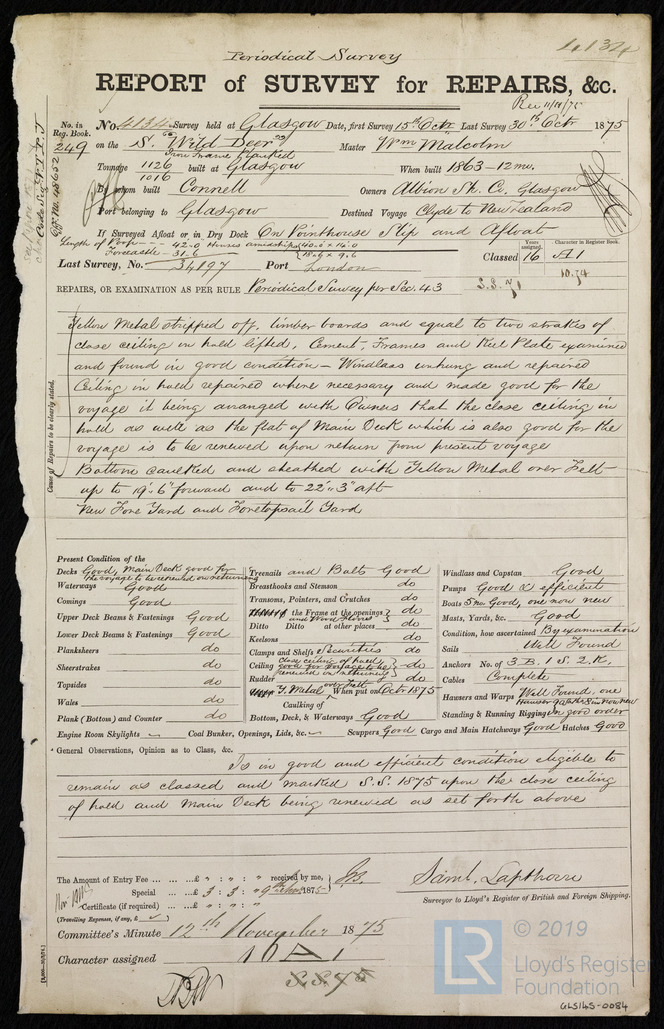 4134
Periodical Survey
REPORT of SURVEY for REPAIRS, &c.
No. in Reg. Book. 249
No. 4134 Survey held at Glasgow Date, first Survey 15th Octr Last Survey 30th Octr 1875
on the S. "Wild Deer" Master Wm Malcolm
Iron Frame planked
Tonnage 1126 1016 built at Glasgow When built 1863-12mo.
By whom built Connell Owners Albion Sh. Co. Glasgow
Port belonging to Glasgow Destined Voyage Clyde to New Zealand
If Surveyed Afloat or in Dry Dock On Pointhouse Slip and Afloat
Length of Poop 42.0 Houses amidships 40.0 x 14.0
Forecastle 31.6 18.6 x 9.6
Years assigned. Character in Register Book.
Last Survey, No. 34197 Port London Classed 16 A1
10.74
REPAIRS, OR EXAMINATION AS PER RULE Periodical Survey per Sec. 43
Cause of Repairs to be clearly stated.
Yellow Metal stripped off, limber boards and equal to two strakes of
close ceiling in hold lifted, Cement, Frames and Keel Plate examined
and found in good condition - Windlass unhung and repaired
Ceiling in hold repaired where necessary and made good for the
voyage it being arranged with Owners that the close ceiling in
hold as well as the flat of Main Deck which is also good for the
voyage is to be renewed upon return from present voyage
Bottom caulked and sheathed with Yellow Metal over Felt
up to 19'.6" forward and to 22'.3" aft
New Fore Yard and Foretopsail Yard
Present Condition of the
Decks Good, Main Deck good for the voyage to be renewed on returning
Waterways Good
Comings Good
Upper Deck Beams & Fastenings Good
Lower Deck Beams & Fastenings Good
Planksheers do
Sheerstrakes do
Topsides do
Wales do
Plank (Bottom) and Counter do
Treenails and Bolts Good
Breasthooks and Stemson do
Transoms, Pointers, and Crutches do
the Frame at the openings do
Ditto Ditto at other places do
Keelsons do
Clamps and Shelfs Securities do
Ceiling close ceiling of hold good for voyage to be renewed on returning do
Rudder do
Y. Metal over Felt When put on Octr 1875
Caulking of
Bottom, Deck, & Waterways Good
Windlass and Capstan Good
Pumps Good & efficient
Boats 5 no. Good, one now new
Masts, Yards, &c. Good
Condition, how ascertained By examination
Sails Well Found
Anchors No. of 3 B. 1 S. 2 K.
Cables Complete
Hawsers and Warps Well Found, one
Standing & Running Rigging in good order
Engine Room Skylights Coal Bunker, Openings, Lids, &c. Scuppers Good Cargo and Main Hatchways Good Hatches Good
General Observations, Opinion as to Class, &c.
Is in good and efficient condition eligible to
remain as classed and marked S.S. 1875 upon the close ceiling
of hold and Main Deck being renewed as set forth above
The Amount of Entry Fee ... ... ...£ : : received by me,
Special ... ...£ 3 : 3 : 1875
Certificate (if required) ... ...£ : :
(Travelling Expenses, if any, £ )
Saml. Lapthorn
Surveyor to Lloyd's Register of British and Foreign Shipping.
Committee's Minute 12th November 1875
Character assigned 16 A1
S.S. 75
© 2019
LR
Lloyd's Register
Foundation
GLS145-0084